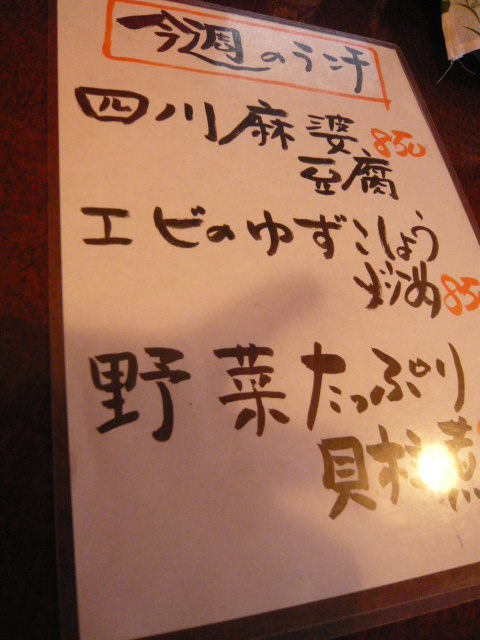 今週のランチ
四川麻婆 850
豆腐
エビのゆずこしょう
炒め 85
野菜たっぷり
貝柱煮